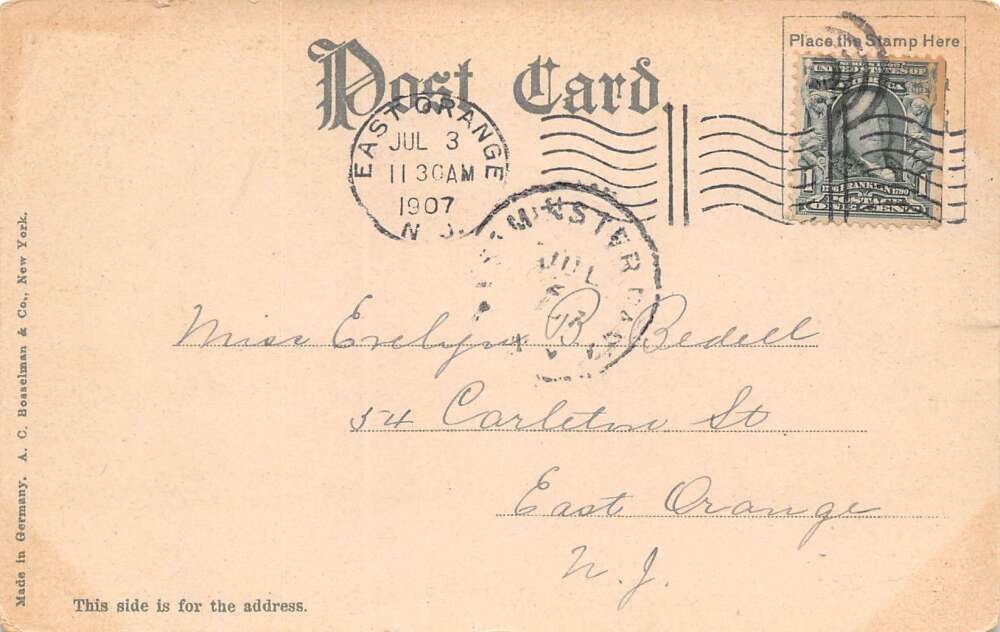 Post Card
Place the Stamp Here
UNITED STATES OF
AMERICA
1 1706 FRANKLIN 1790 1
POSTAGE
ONE CENT
EAST ORANGE
JUL 3
11 30AM
1907
N.J.
MINSTER
JUL
Miss Evelyn R. Bedell
54 Carleton St
East Orange
N.J.
This side is for the address.
Made in Germany. A. C. Bosselman & Co., New York.